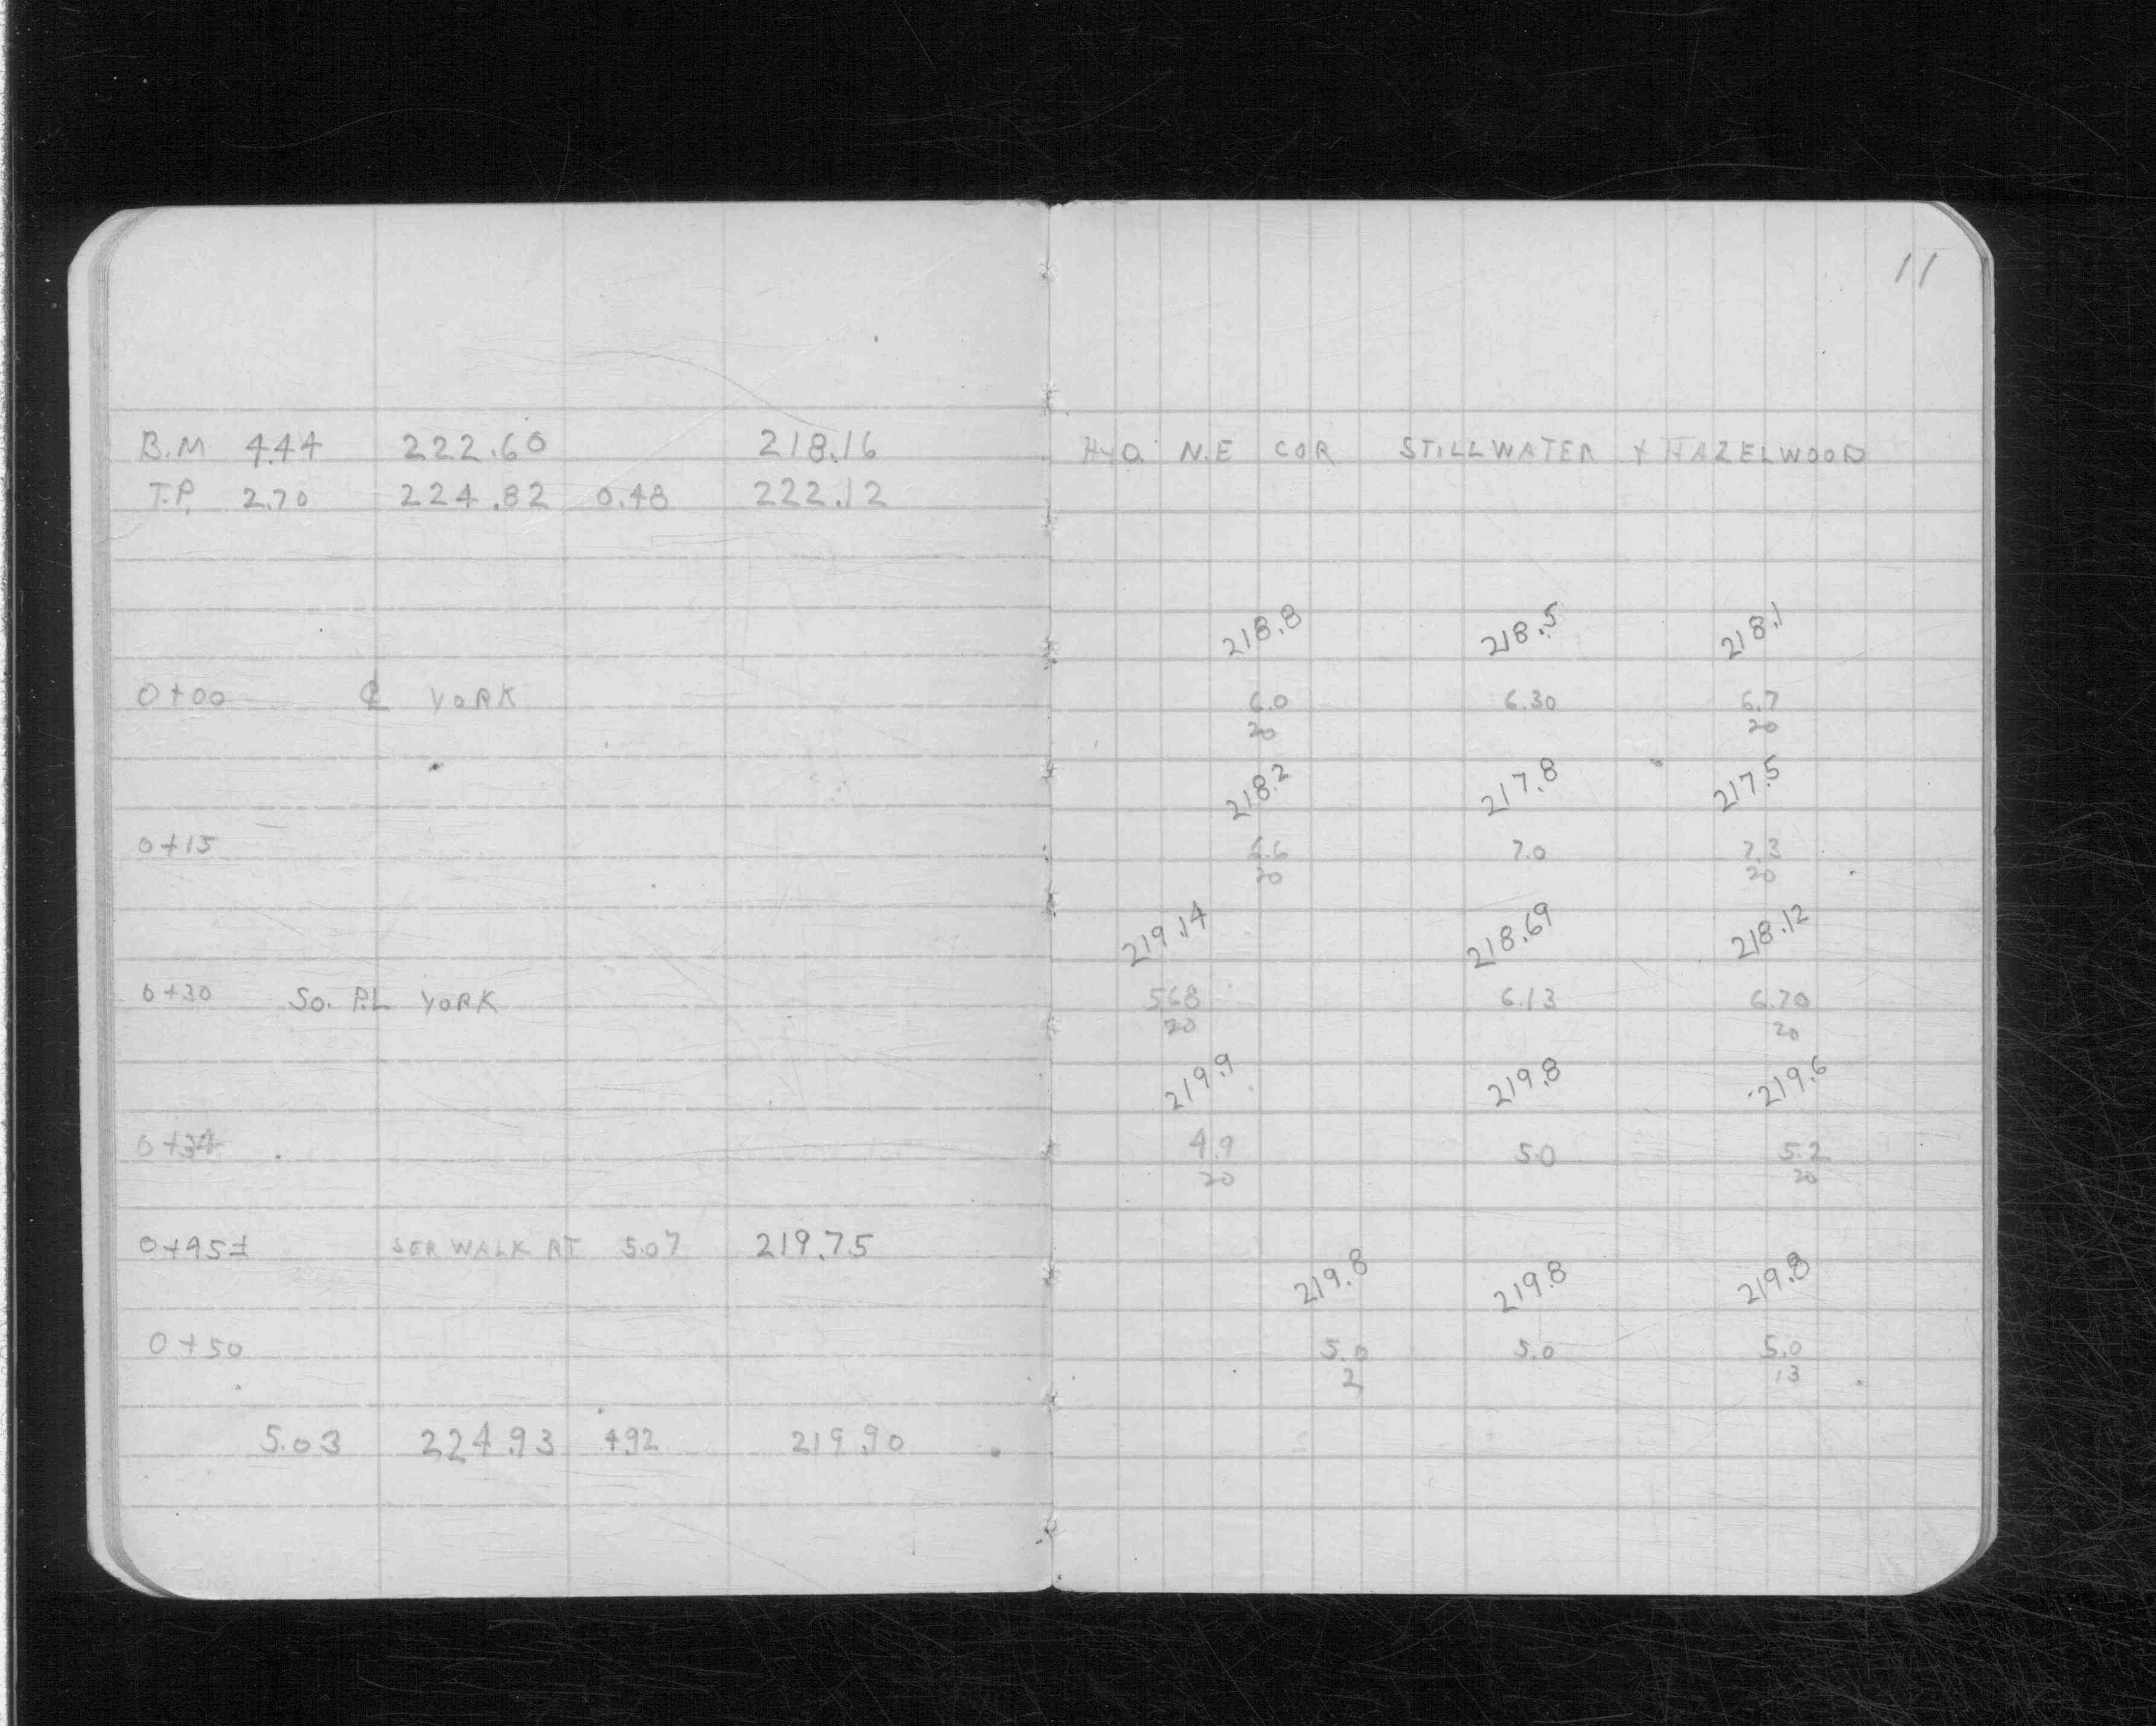 11
B.M 4.44 222.60 218.16 HYD. N.E COR STILLWATER & HAZELWOOD
T.P. 2.70 224.82 0.48 222.12
218.8 218.5 218.1
0+00 ℄ YORK 6.0 6.30 6.7
20 20
218.2 217.8 217.5
0+15 6.6 7.0 7.3
20 20
219.14 218.69 218.12
0+30 So. P.L YORK 5.68 6.13 6.70
20 20
219.9 219.8 219.6
0+34 4.9 5.0 5.2
20 20
0+45± SER WALK AT 5.07 219.75
219.8 219.8 219.8
0+50 5.0 5.0 5.0
2 13
5.03 224.93 4.92 219.90